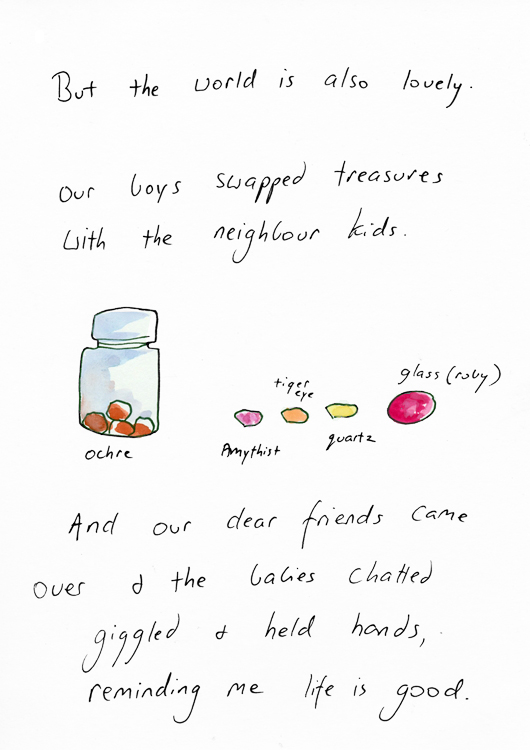 But the world is also lovely.
Our boys swapped treasures
with the neighbour kids.
glass (ruby)
tiger
eye
ochre
Amythist
quartz
And our dear friends came
over & the babies chatted
giggled & held hands,
reminding me life is good.